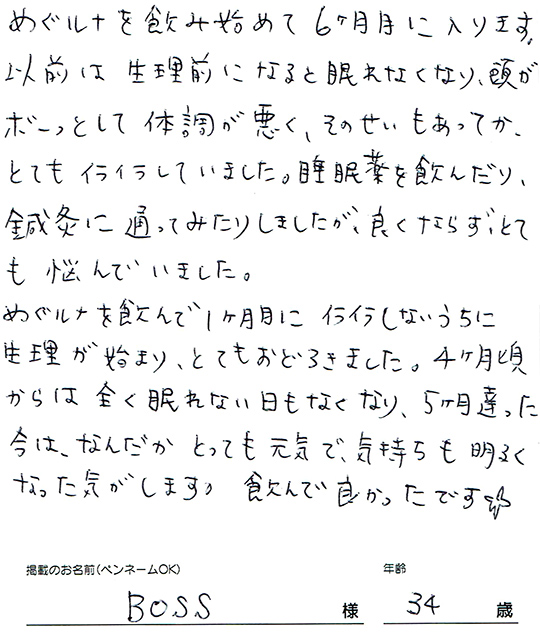 めぐルナを飲み始めて6ヶ月目に入ります。
以前は生理前になると眠れなくなり、頭が
ボーっとして体調が悪く、そのせいもあってか、
とてもイライラしていました。睡眠薬を飲んだり、
鍼灸に通ってみたりしましたが、良くならず、とて
も悩んでいました。
めぐルナを飲んで1ヶ月目にイライラしないうちに
生理が始まり、とてもおどろきました。4ヶ月頃
からは全く眠れない日もなくなり、5ヶ月達った
今は、なんだかとっても元気で、気持ちも明るく
なった気がします♪ 飲んで良かったです☆
掲載のお名前(ペンネームOK) 年齢
BOSS 様 34 歳